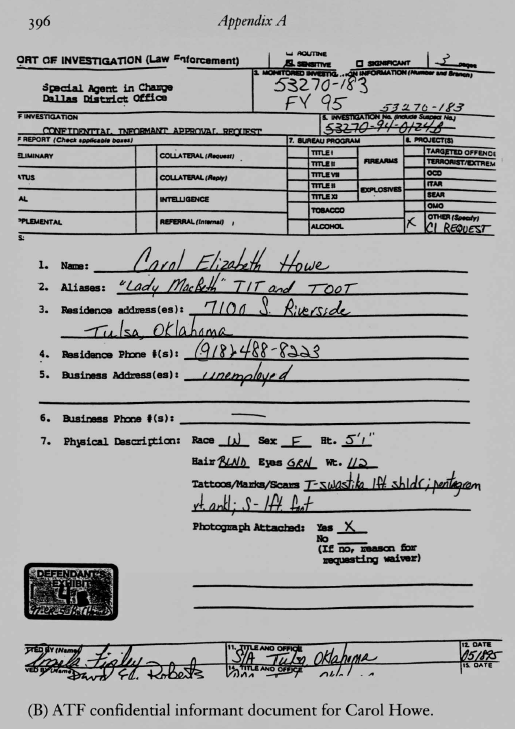 396 Appendix A
ORT OF INVESTIGATION (Law Enforcement)
ROUTINE
SENSITIVE SIGNIFICANT 3 pages
Special Agent in Charge
Dallas District Office
3. MONITORED INVESTIG INFORMATION (Number and Branch)
53270-183
FY 95
53270-183
F INVESTIGATION
CONFIDENTIAL INFORMANT APPROVAL REQUEST
5. INVESTIGATION No. (Include Suspect No.)
53270-94-0124B
F REPORT (Check applicable boxes)
7. BUREAU PROGRAM
8. PROJECT(S)
ELIMINARY
COLLATERAL (Request)
TITLE I
TITLE II
FIREARMS
TARGETED OFFENDE
TERRORIST/EXTREM
ATUS
COLLATERAL (Reply)
TITLE VII
TITLE II
TITLE XI
EXPLOSIVES
OCD
ITAR
SEAR
OMO
AL
INTELLIGENCE
TOBACCO
ALCOHOL
PPLEMENTAL
REFERRAL (Internal)
X OTHER (Specify)
CI REQUEST
S:
1. Name: Carol Elizabeth Howe
2. Aliases: "Lady MacBeth" TIT and TOOT
3. Residence address(es): 7100 S. Riverside
Tulsa, Oklahoma
4. Residence Phone #(s): (918) 488-8223
5. Business Address(es): unemployed
6. Business Phone #(s): —
7. Physical Description: Race W Sex F Ht. 5'1"
Hair BLND Eyes GRN Wt. 112
Tattoos/Marks/Scars T-swastika lft shldr; pentagram
rt. ankl; S- lft. foot
Photograph Attached: Yes X
No
(If no, reason for
requesting waiver)
DEFENDANT
EXHIBIT
4
TED BY (Name)
Angela Finley
11. TITLE AND OFFICE
S/A Tulsa Oklahoma
12. DATE
051895
VED BY (Name)
David E. Roberts
14. TITLE AND OFFICE
15. DATE
(B) ATF confidential informant document for Carol Howe.